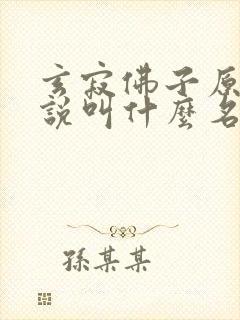 玄寂佛子原
說叫什麼名
孫某某